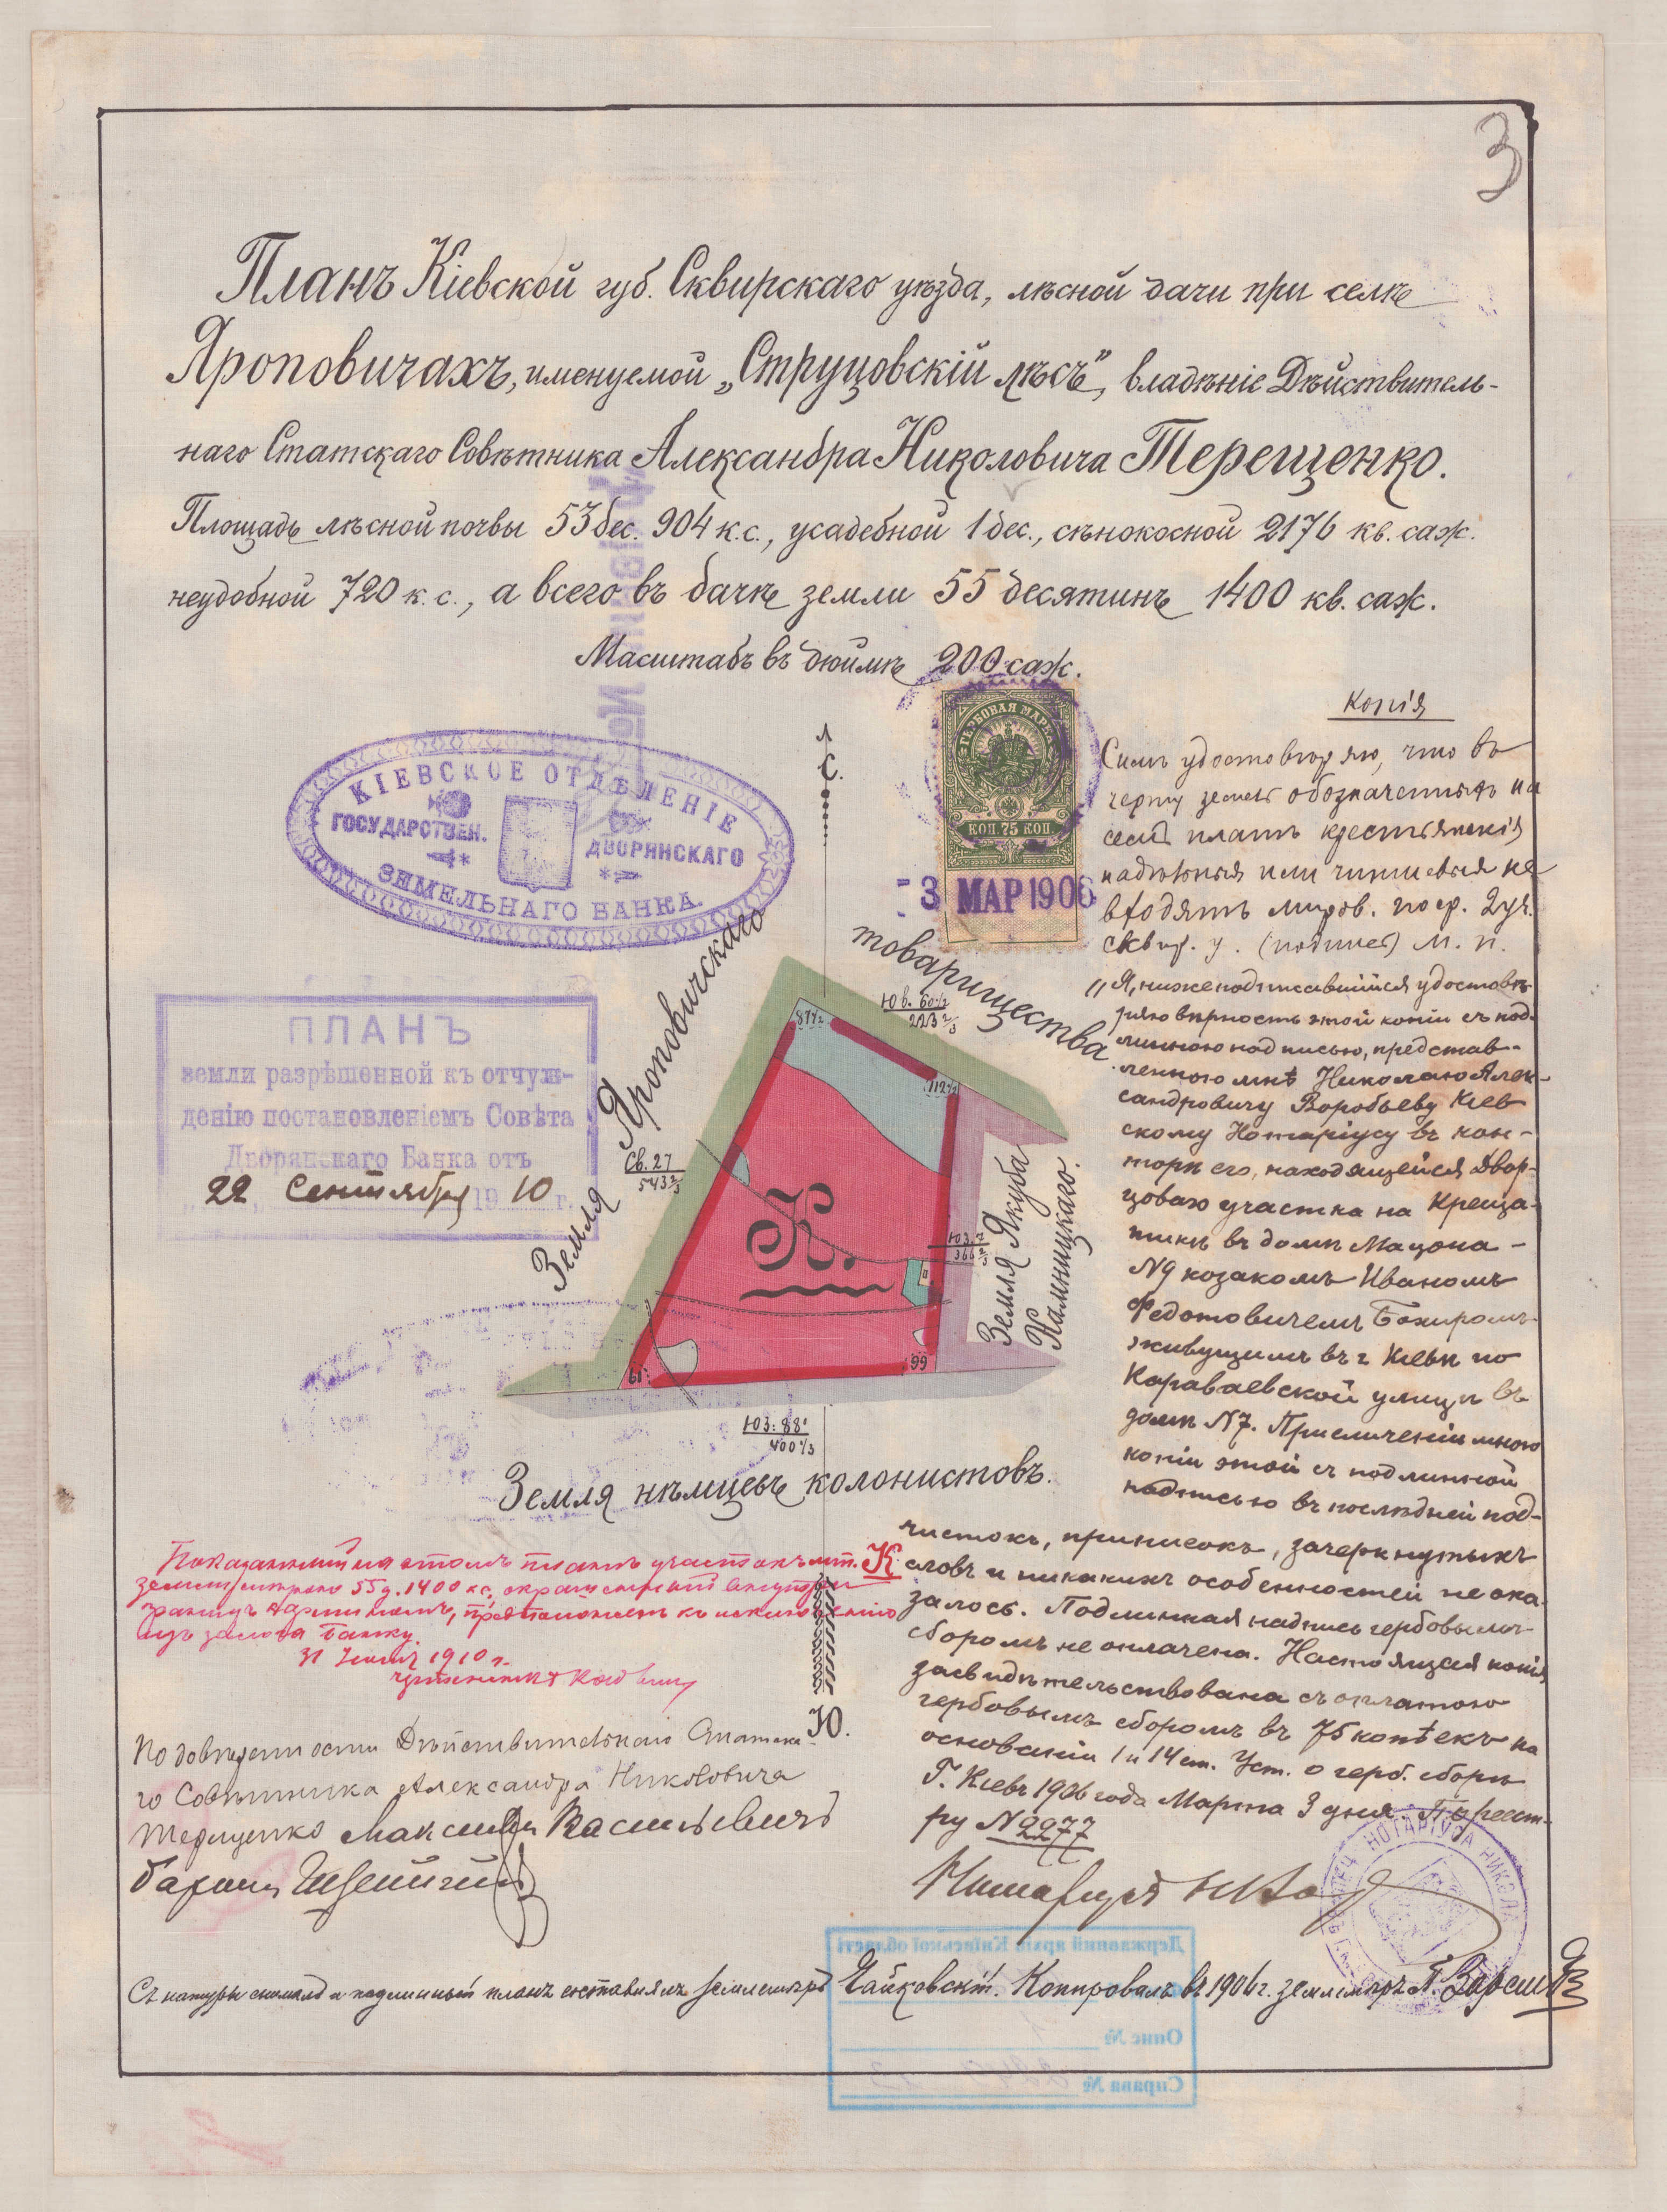 3
Планъ Кіевской губ. Сквирскаго уѣзда, лѣсной дачи при селѣ
Яроповичахъ, именуемой „Струцовскій лѣсъ", владѣніе Дѣйствитель-
наго Статскаго Совѣтника Александра Николовича Терещенко.
Площадь лѣсной почвы 53 дес. 904 к.с., усадебной 1 дес., сѣнокосной 2176 кв. саж.
неудобной 720 к. с., а всего въ дачѣ земли 55 десятинъ 1400 кв. саж.
Масштабъ въ дюймѣ 200 саж.
КІЕВСКОЕ ОТДѢЛЕНІЕ
ГОСУДАРСТВЕН.
ДВОРЯНСКАГО
ЗЕМЕЛЬНАГО БАНКА.
С.
ГЕРБОВАЯ МАРКА
КОП. 75 КОП.
3 МАР 1906
Копія
Симъ удостовѣряю, что въ
черту земель обозначенныхъ на
семъ планѣ крестьянскія
надѣльныя или чиншевыя не
входятъ миров. поср. 2 уч.
Сквир. у. (подпись) М. п.
„Я, нижеподписавшійся удостовѣ-
ряю вѣрность этой копіи съ под-
линною надписью, представ-
ленною мнѣ Николаю Алек-
сандровичу Воробьеву Кіев-
скому Нотаріусу въ кон-
торѣ его, находящейся Двор-
цоваго участка на Креща-
тикѣ въ домѣ
№9 козакомъ Иваномъ
Федотовичемъ
живущимъ въ г. Кіевѣ по
Караваевской улицѣ въ
домѣ №7. При сличеніи мною
копіи этой съ подлинной
надписью въ послѣдней под-
чистокъ, приписокъ, зачеркнутыхъ
словъ и никакихъ особенностей не ока-
залось. Подлинная надпись гербовымъ
сборомъ не оплачена. Настоящая копія
засвидѣтельствована съ оплатою
гербовымъ сборомъ въ 75 копѣекъ на
основаніи 1 и 14 ст. Уст. о герб. сборѣ
Г. Кіевъ 1906 года Марта 3 дня. По реест-
ру №2277
Нотаріусъ
ПЛАНЪ
земли разрѣшенной къ отчуж-
денію постановленіемъ Совѣта
Дворянскаго Банка отъ
„22" Сентября 1910 г.
Земля Яроповичскаго
товарищества.
87½
Юв. 60½
223⅔
112½
Св. 27
543⅔
К.
ЮЗ. 7
366⅔
Земля Якуба
Камницкаго.
61
99
ЮЗ: 88°
400⅓
Земля нѣмцевъ колонистовъ.
Показанный на этомъ планѣ участокъ лит. К
земли мѣрою 55 д. 1400 к.с., окрашенный внутри
границъ карминомъ, предположенъ къ исключенію
изъ залога Банку.
1910 г.
Ю.
По довѣренности Дѣйствительнаго Статска-
го Совѣтника Александра Николовича
Терещенко Васильевичъ
баронъ
Съ натуры снималъ и подлинный планъ составлялъ землемѣръ Чайковскій. Копировалъ въ 1906 г. землемѣръ
Державний архів Київської області
Опис №
Справа №